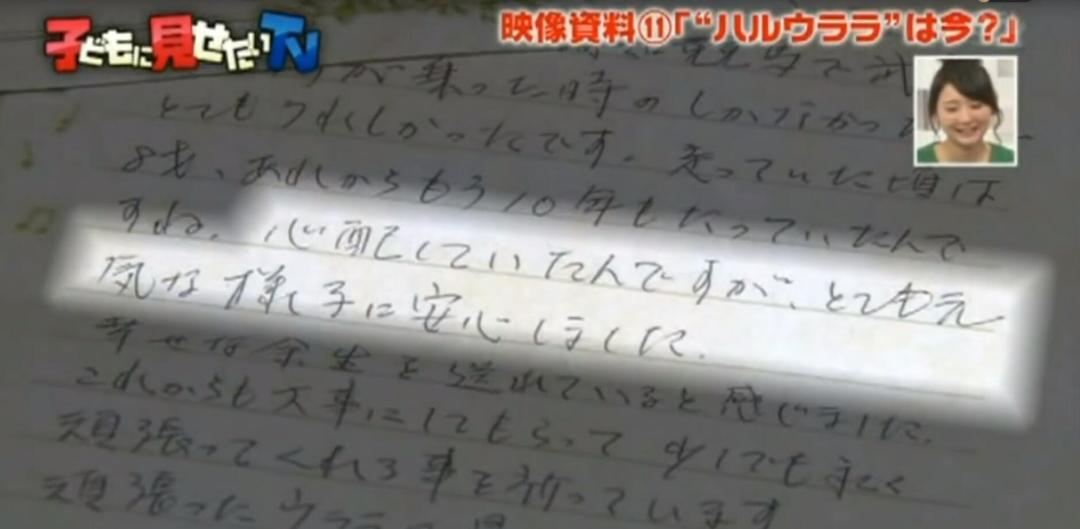 子どもに見せたいTV
映像資料⑪「“ハルウララ”は今?」
が乗った時の
とてもうれしかったです。走っていた頃は
8才、あれからもう10年もたっていたんで
すね。心配していたんですが、とても元
気な様子に安心しました。
幸せな余生を送れていると感じました。
これからも大事にしてもらって少しでも永く
頑張ってくれる事を祈っています
頑張ったウララ